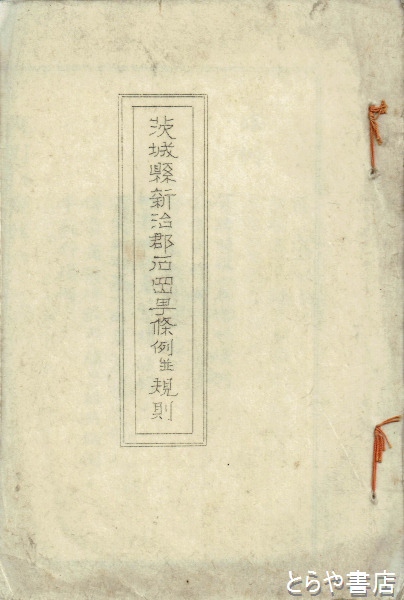 茨城縣新治郡石岡町條例並規則
とらや書店